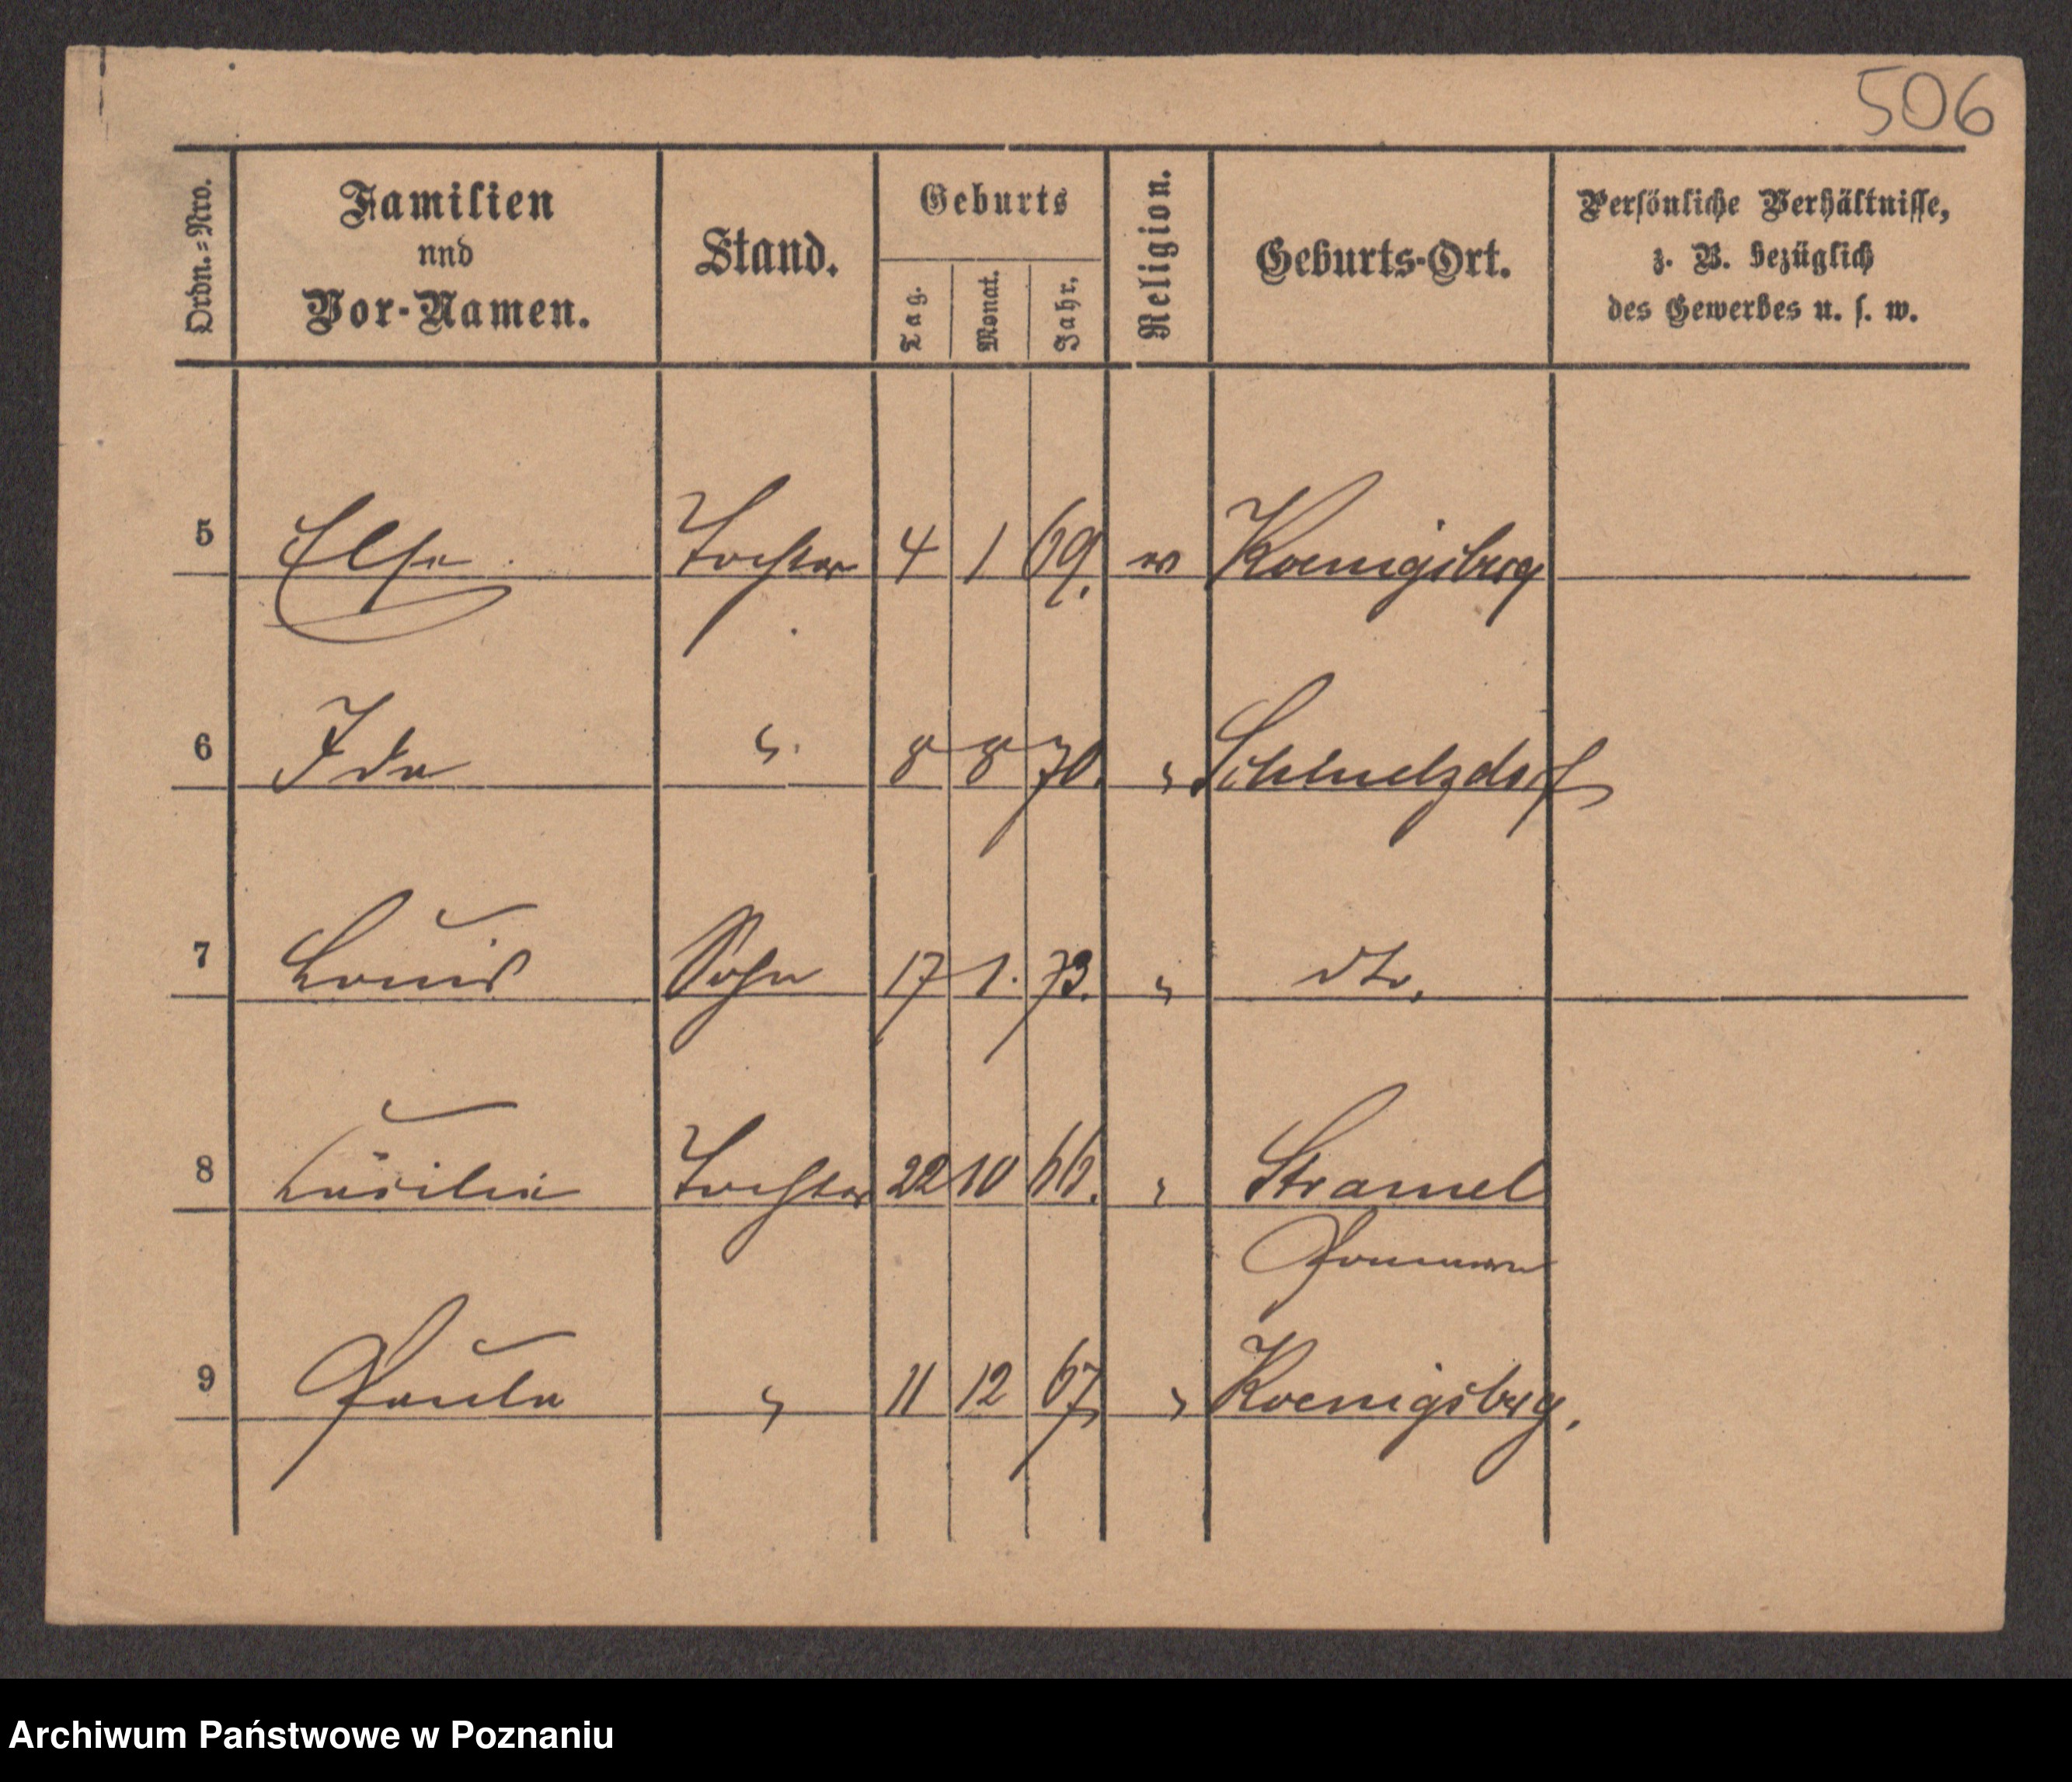 506
Ordn.=Nro.
Familien
und
Vor-Namen.
Stand.
Geburts
Tag.
Monat.
Jahr.
Religion.
Geburts-Ort.
Persönliche Verhältnisse,
z. B. bezüglich
des Gewerbes u. s. w.
5 Else Tochter 4 1 69. Koenigsberg
6 Ida " 8 8 70. " Schmelzdorf
7 Louis Sohn 17 1. 73. " dto.
8 Cäcilie Tochter 22 10 66. " Stramel
Pommern
9 Paula " 11 12 67 " Koenigsberg.
Archiwum Państwowe w Poznaniu